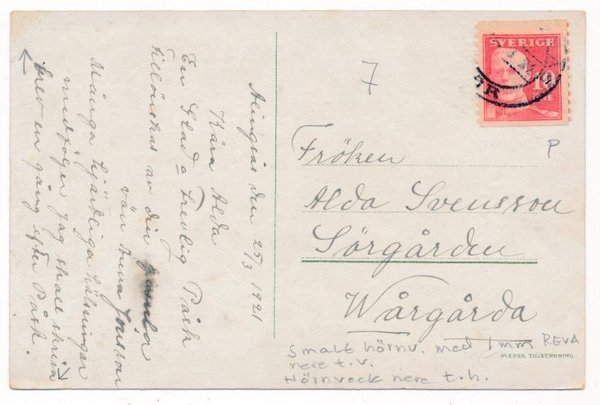 Alingsås den 25/3 1921
Kära Alda
En Glad o trevlig Påsk
tillönskas av din gamla
vän Anna Jonsson
Många hjärtliga hälsningar
jag skall skriva
brev en gång efter Påsk.
SVERIGE
10
ÖRE
7
P
Fröken
Alda Svensson
Sörgården
Wårgårda
Smalt hörnv. med 1mm REVA
nere t.v.
Hörnveck nere t.h.
SVENSK TILLVERKNING